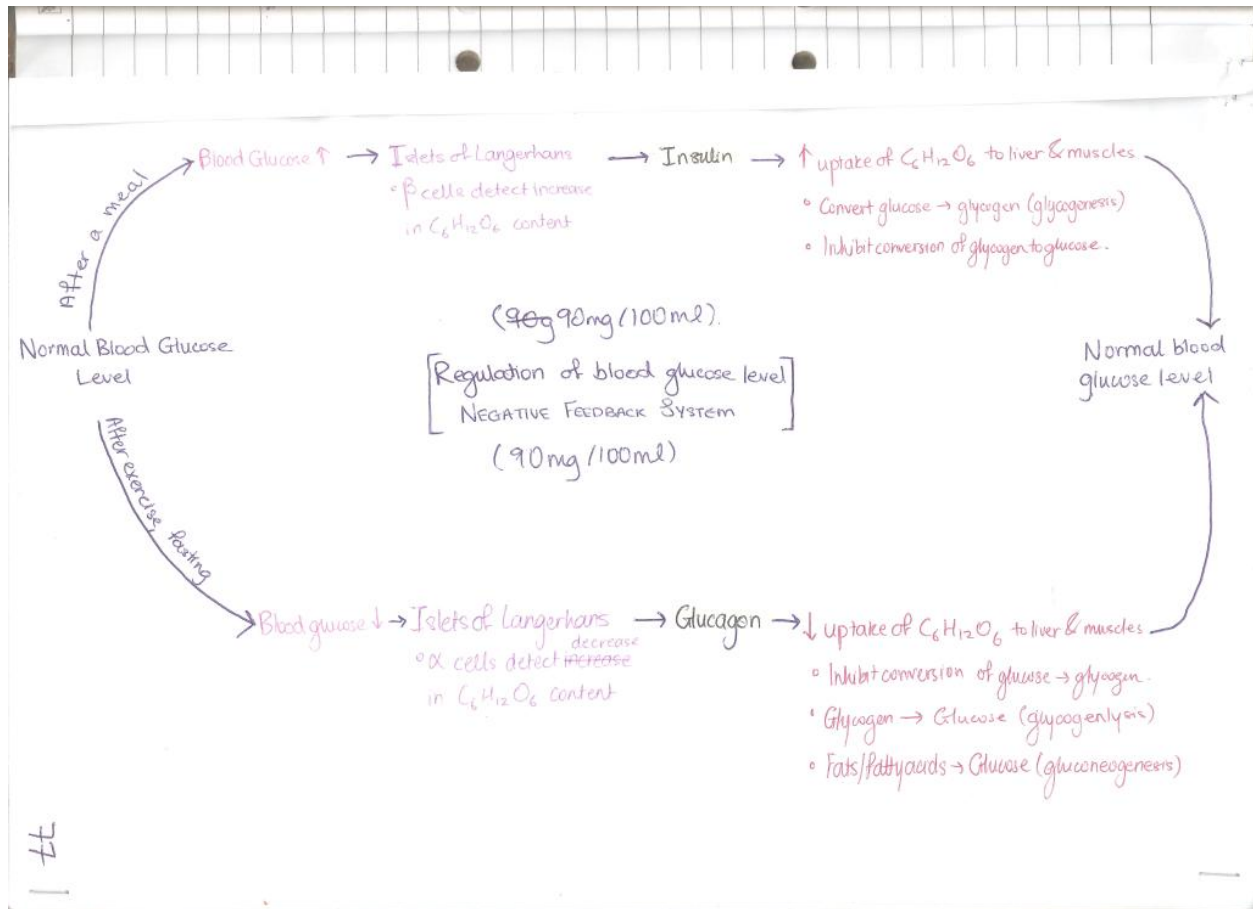 Blood Glucose ↑ → Islets of Langerhans → Insulin → ↑ uptake of C₆H₁₂O₆ to liver & muscles
° β cells detect increase
in C₆H₁₂O₆ content
° Convert glucose → glycogen (glycogenesis)
° Inhibit conversion of glycogen to glucose.
After a meal
Normal Blood Glucose
Level
(90g 90mg/100ml).
[Regulation of blood glucose level]
NEGATIVE FEEDBACK SYSTEM
(90mg/100ml)
Normal blood
glucose level
After exercise, fasting
Blood glucose ↓ → Islets of Langerhans → Glucagon → ↓ uptake of C₆H₁₂O₆ to liver & muscles
decrease
° α cells detect increase
in C₆H₁₂O₆ content
° Inhibit conversion of glucose → glycogen.
° Glycogen → Glucose (glycogenlysis)
° Fats/fattyacids → Glucose (gluconeogenesis)